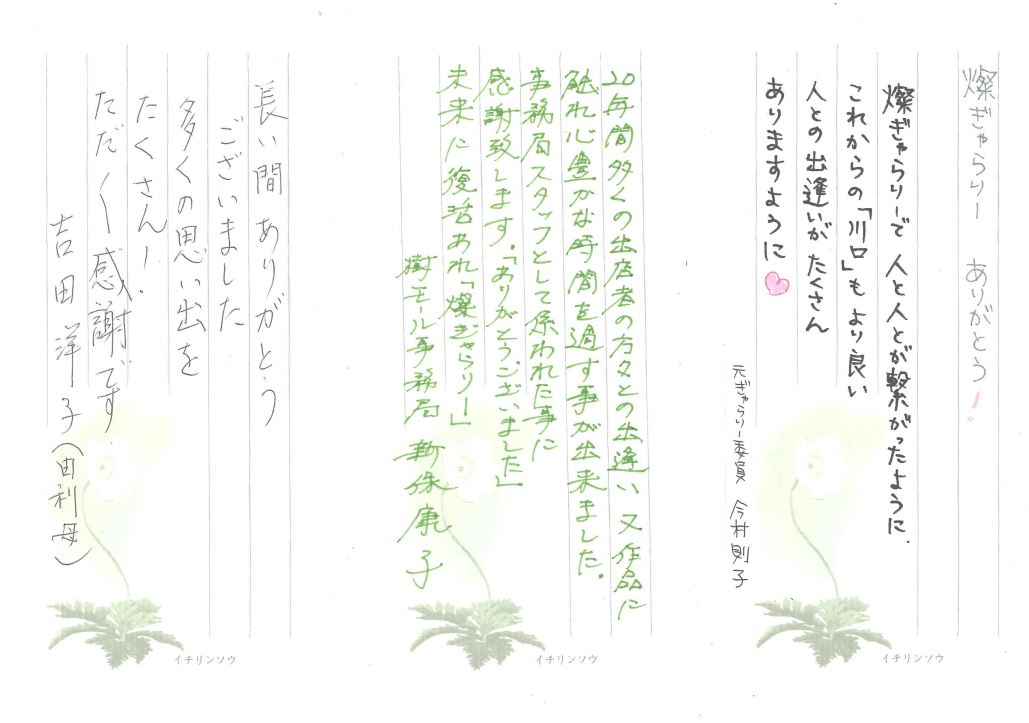 燦ぎゃらりー ありがとう！
燦ぎゃらりーで 人と人とが繋がったように
これからの「川口」もより良い
人との出逢いが たくさん
ありますように
元ぎゃらりー委員 今村則子
イチリンソウ
20年間多くの出店者の方々との出逢い 又作品に
触れ心豊かな時間を過す事が出来ました。
事務局スタッフとして係われた事に
感謝致します。「ありがとうございました」
未来に復活あれ「燦ぎゃらりー」
樹モール事務局 新保康子
イチリンソウ
長い間 ありがとう
ございました
多くの思い出を
たくさんー！
ただ／＼感謝です
吉田洋子(由利母)
イチリンソウ